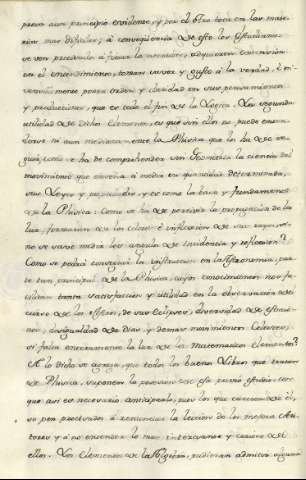 pieno aun principio evidente, y por el otro toca en las mas
 mas dificiles; à consequencia de esto los Estudiantes
se ven precisados à fixar la atencion, adquieren extension
en el entendimiento, toman amor, y gusto à la verdad, è in-
sensiblemente ponen orden y claridad en sus pensamientos
y producciones, que es todo el fin de la Logica. La segunda
utilidad de dichos Elementos, es que sin ellos no se puede enten-
der ni aun medianamente la Physica que los ha de se-
guir, como se ha de comprehender sin Geometria la ciencia del
movimiento que enseña à medir en que razon determinada,
sus Leyes y propiedades, y es como la basa y fundamento
de la Physica: Como se hà de percivir la propagacion de la
luz, formacion de los colores è inflexion de sus rayos, si
no se save medir los angulos de incidencia y reflexion?
Como se podrà conseguir la instruccion en la Astronomia, par-
te tan principal de la Physica, cuyos conocimientos nos fa-
cilitan tanta satisfaccion y utilidad en la observacion del
curso de los Astros, de sus Eclipses, diversidad de Estacio-
nes, desigualdad de dias, y demas movimientos Celestes,
si falta enteramente la luz de los Matematicos elementos?
A lo dicho se agrega, que todos los buenos Libros que tratan
de Physica, suponen la posesion de este previo estudio, por
que asi es necesario anticiparlo, pues los que carecen de èl,
se ven precisados à renunciar la leccion de los mejores Au-
tores y à no entender lo mas interesante y curioso de
ellos. Los Elementos de la Algebra, pudieran admitir alguna